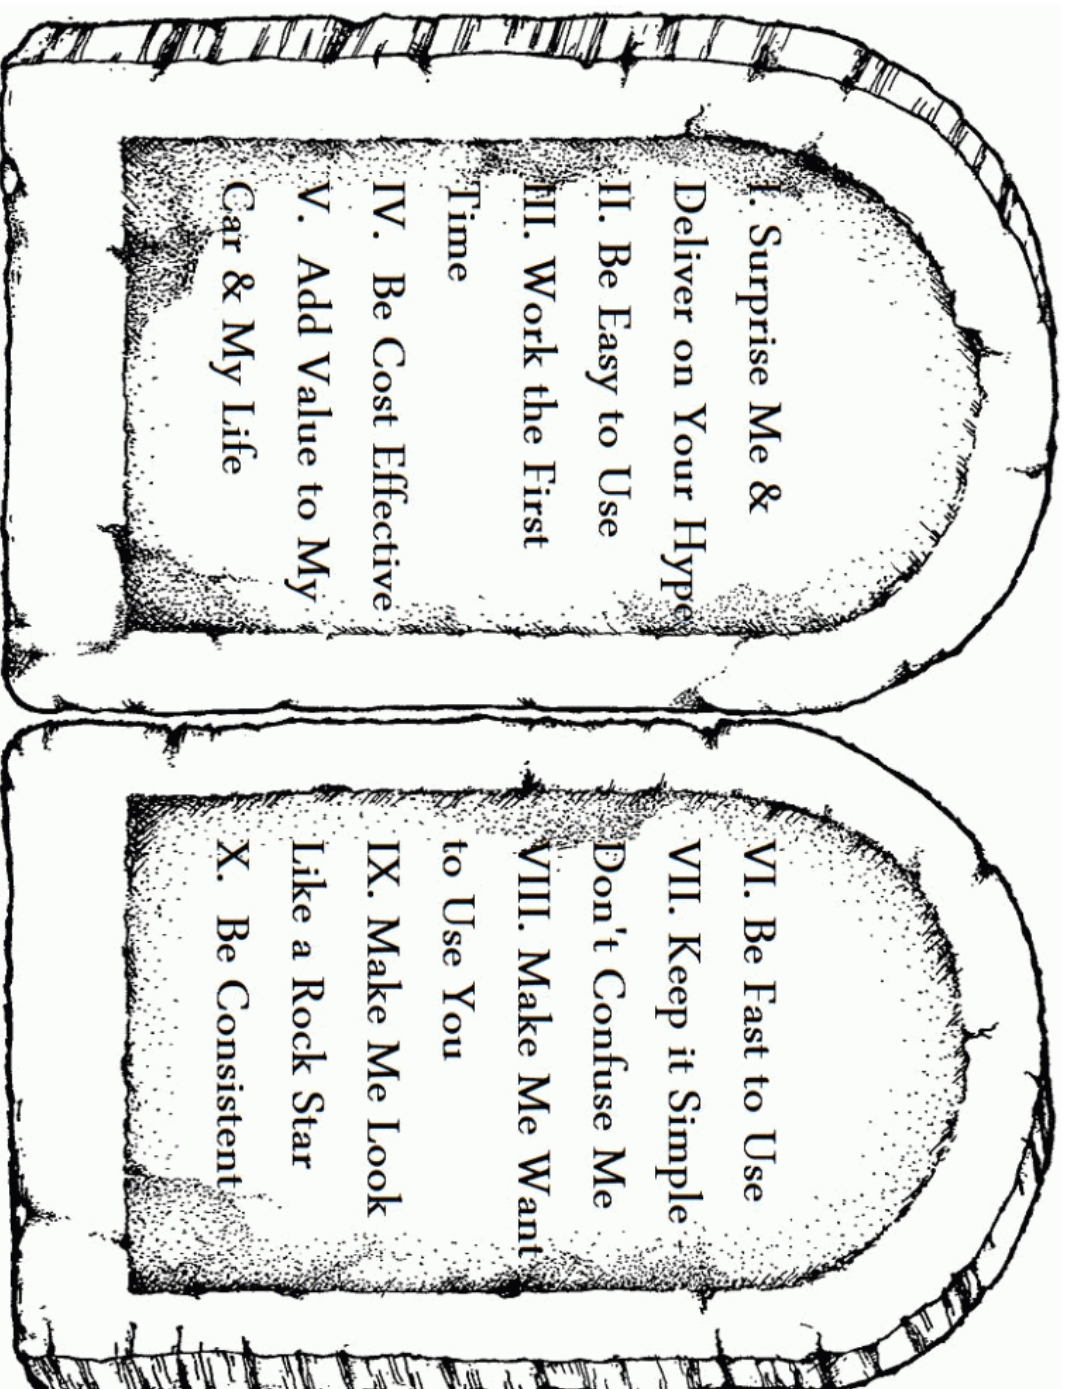 I. Surprise Me &
Deliver on Your Hype
II. Be Easy to Use
III. Work the First
Time
IV. Be Cost Effective
V. Add Value to My
Car & My Life
VI. Be Fast to Use
VII. Keep it Simple
Don't Confuse Me
VIII. Make Me Want
to Use You
IX. Make Me Look
Like a Rock Star
X. Be Consistent